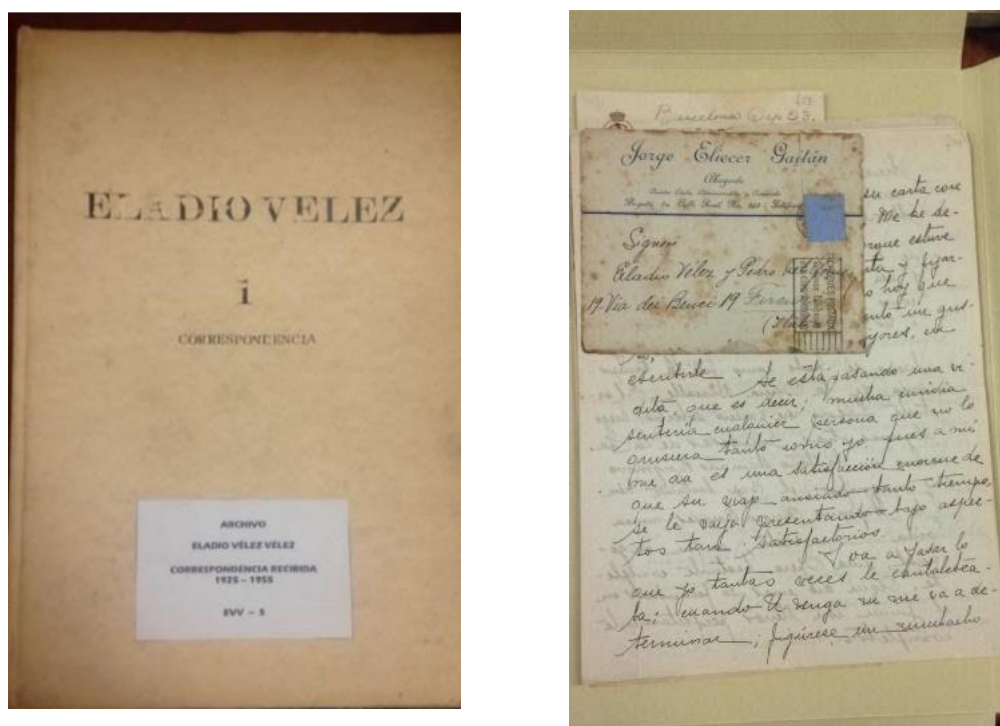 ELADIO VELEZ
1
CORRESPONDENCIA
ARCHIVO
ELADIO VÉLEZ VÉLEZ
CORRESPONDENCIA RECIBIDA
1925 – 1955
EVV – 5
Barcelona Sep 23.
Jorge Eliecer Gaitán
Abogado
Bogotá, Calle Real, No.
Signori
Eladio Vélez y Pedro
19 Via dei Benci 19 Firenze
su carta con
Me he de-
rque estuve
ta y fijar-
o hoy que
un gus-
yores, en
escribirle Se está pasando una vi-
dita, que es decir; mucha envidia
sentiría cualquier persona que no lo
quisiera tanto como yo pues a mi
me da es una satisfacción enorme de
que su viaje ansiado tanto tiempo,
se le vaya presentando bajo aspec-
tos tan satisfactorios.
Va a pasar lo
que yo tantas veces le cantaletea-
ba; cuando U. venga ni me va a de-
terminar; figúrese un muchacho